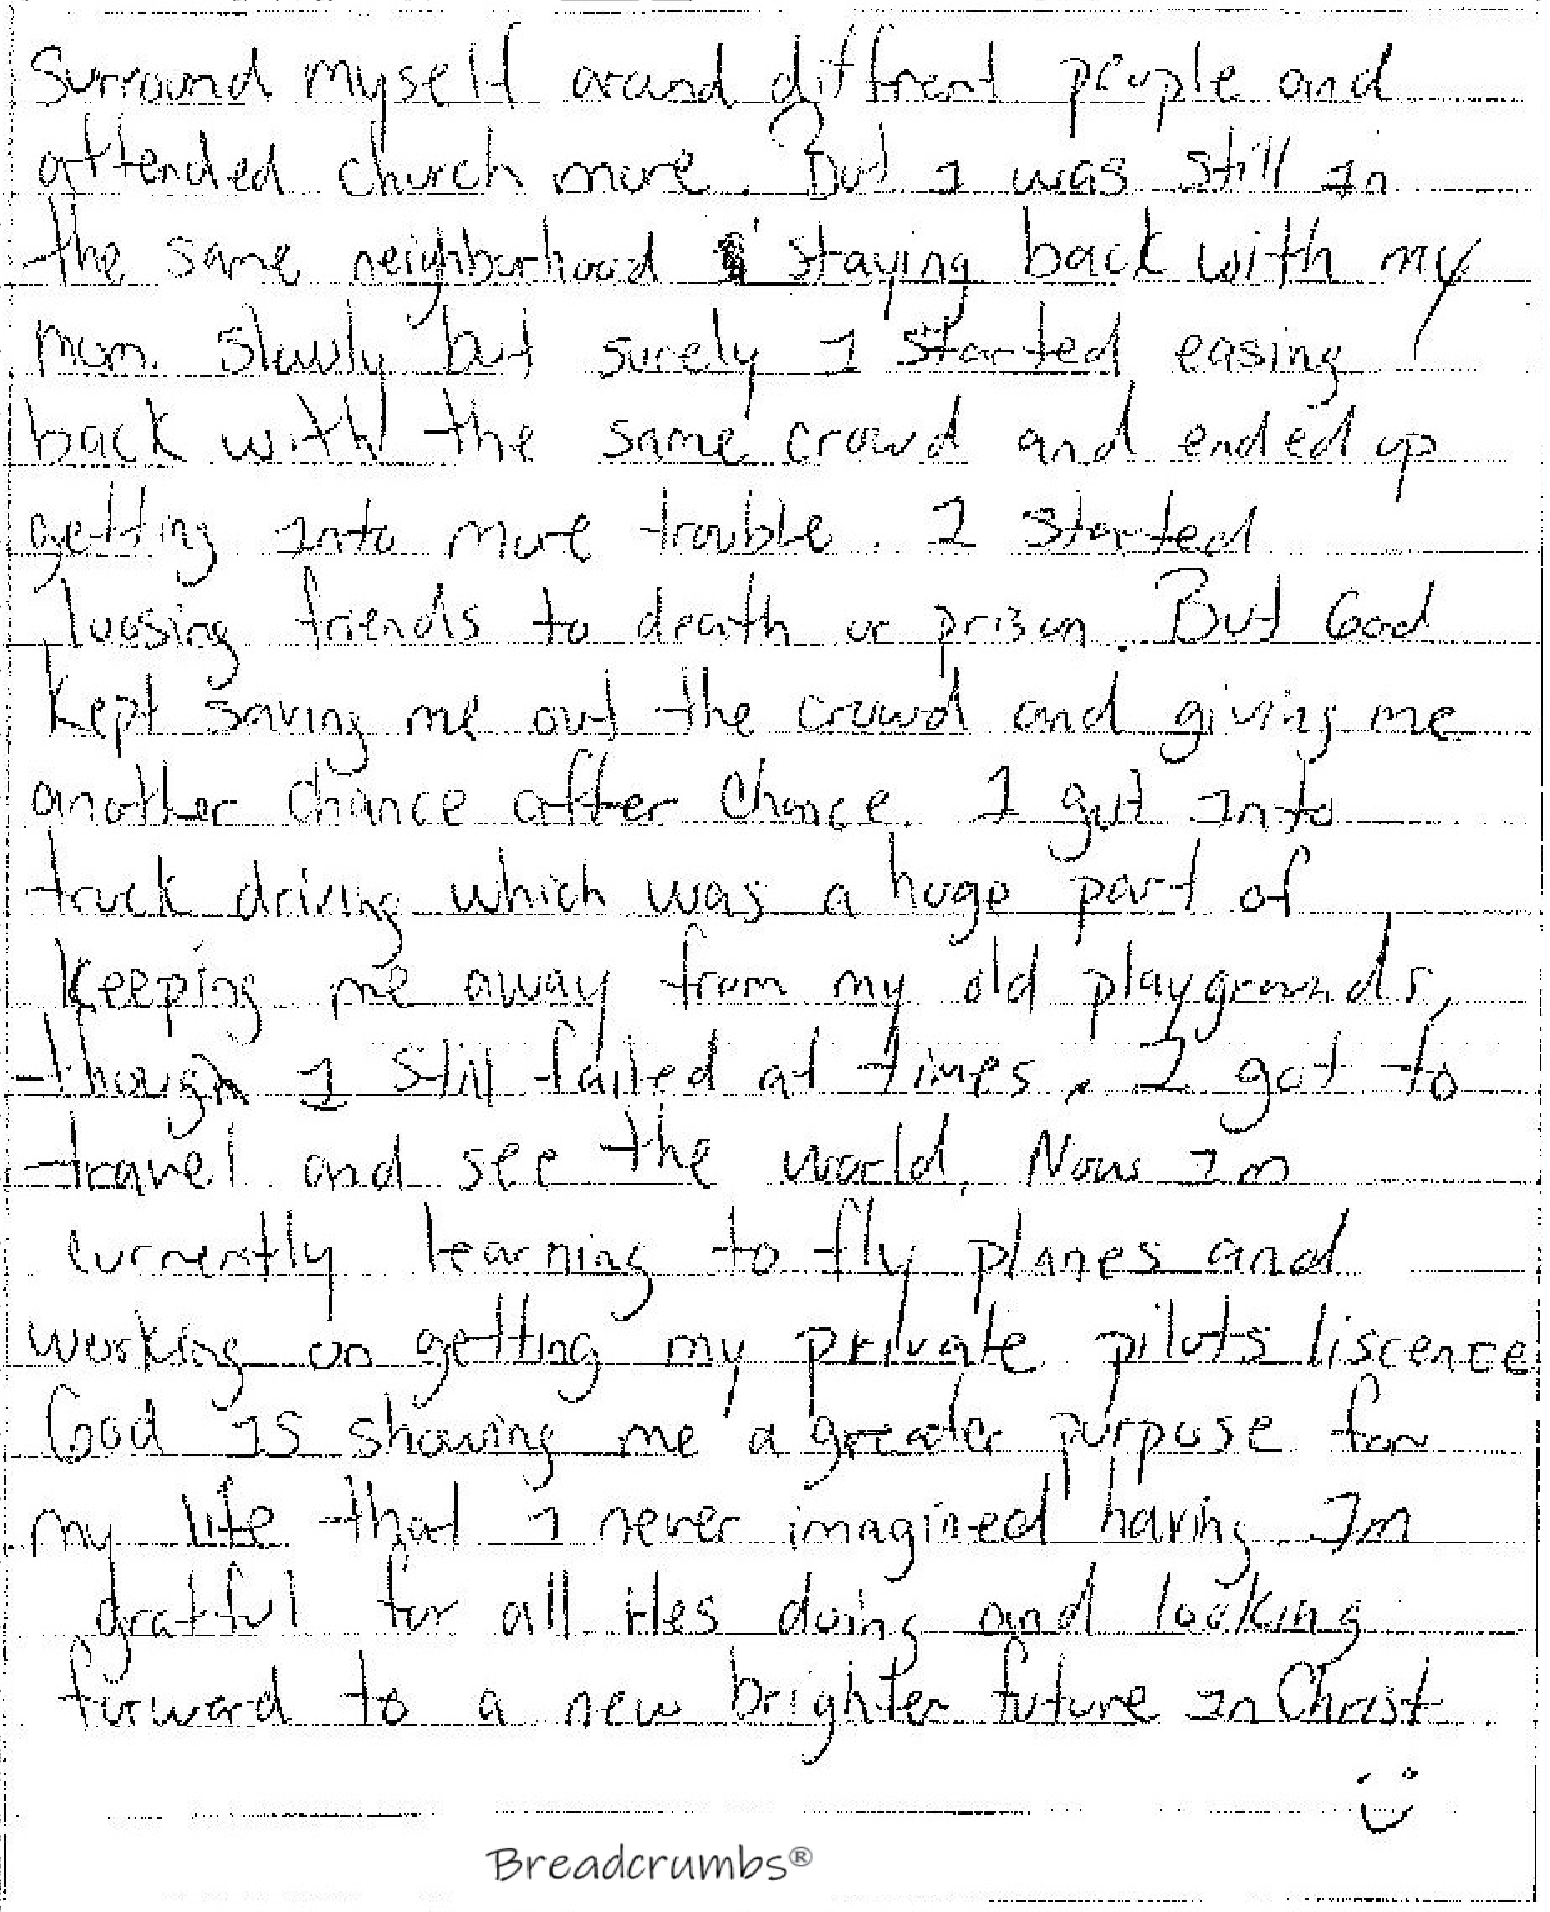 Surround myself around diffrent people and
attended church more. But I was still in
the same neighborhood staying back with my
mom. Slowly but surely I started easing
back with the same crowd and ended up
getting into more trouble. I started
loosing friends to death or prison. But God
kept saving me out the crowd and giving me
another chance after chance. I got into
truck driving which was a huge part of
keeping me away from my old playgrounds,
though I still failed at times. I got to
travel and see the world. Now Im
currently learning to fly planes and
working on getting my private pilots liscence
God is showing me a greater purpose for
my life that I never imagined having. Im
gratful for all Hes doing and looking
forward to a new brighter future in Christ.
Breadcrumbs®